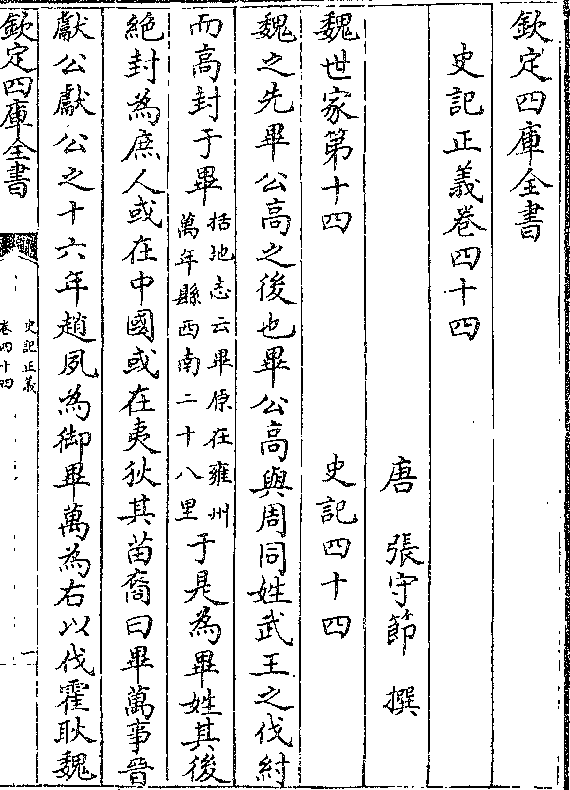 欽定四庫全書
史記正義卷四十四
唐 張守節 撰
魏世家第十四 史記四十四
魏之先畢公高之後也畢公高與周同姓武王之伐紂
而高封于畢括地志云畢原在雍州萬年縣西南二十八里于是為畢姓其後
絕封為庶人或在中國或在夷狄其苗裔曰畢萬事晉
獻公獻公之十六年趙夙為御畢萬為右以伐霍耿魏
欽定四庫全書
史記正義
卷四十四
一